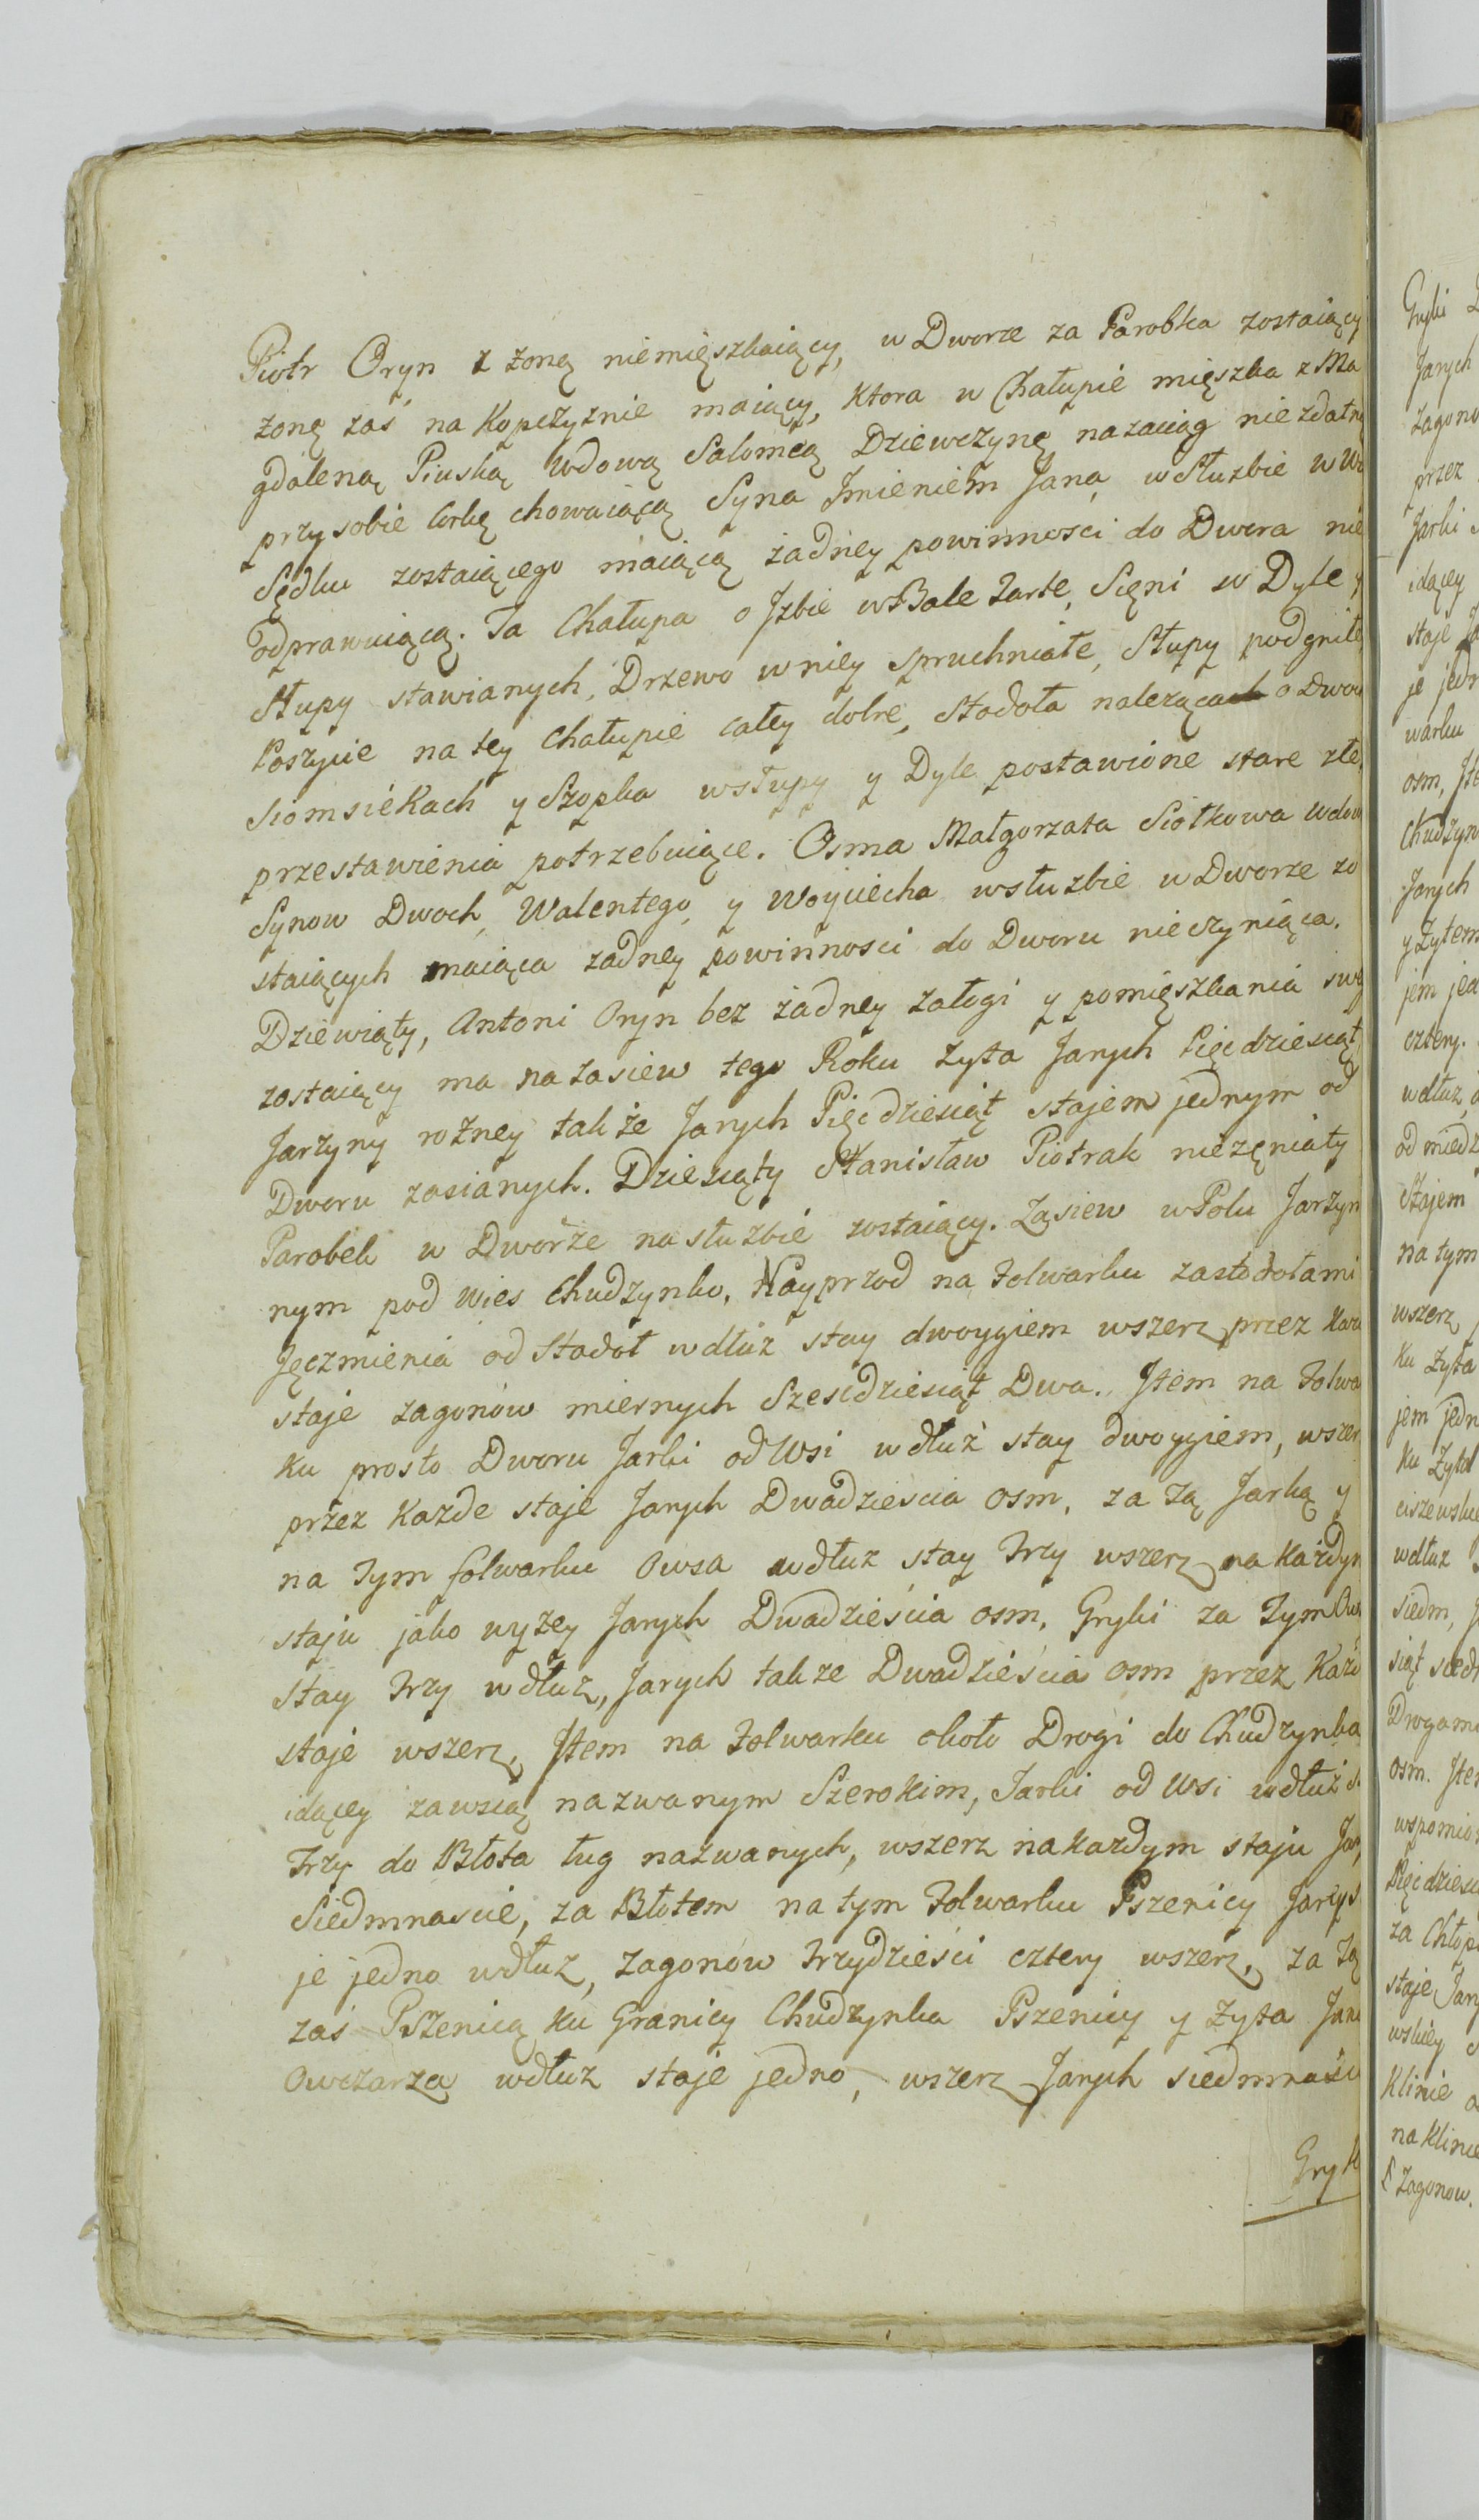 Piotr Oryn z żoną niemięszkaiący, w Dworze za Parobka zostaiący
żonę zaś na Kopczyznie maiący, Ktora w Chałupie mięszka z Ma
gdaleną Piuską Wdową Salomeą Dziewczynę nazaciąg niezdatną
przysobie Corkę chowaiącą Syna Jmieniem Jana, wSłuzbie w
Sędku zostaiącego maiącą żadney powinnosci do Dwora nie
odprawuiącą. Ta Chałupa o Jzbie wBale Tarte, Sięni w Dyle y
Słupy stawianych, Drzewo wniey spruchniałe, Słupy podgniłe,
Poszycie natey Chałupie całey dobre, Stodoła należąca o Dwo
siomsiekach y Szopka wsłupy y Dyle postawione stare złe,
przestawienia potrzebuiące. Osma Małgorzata Siółkowa Wdow
Synow Dwoch, Walentego, y Woyciecha wsłuzbie w Dworze zo
staiących maiąca zadney powinnosci do Dworu nieczyniąca.
Dziewiąty, Antoni Oryn bez żadney załogi y pomięszkania swe
zostaiący ma nazasiew tego Roku Zyta Jarych Pięcdziesiąt,
Jarzyny rożney także Jarych Pięcdziesiąt stajem jednym od
Dworu zasianych. Dziesiąty Stanisław Piotrak nieżęniały
Parobek w Dworze nasłuzbie zostaiący. Zasiew wPolu Jarzyn
nym pod Wies Chudzynko. Nayprzod na Folwarku zastodołami
Jęczmienia od Stodoł wdłuż stay dwoygiem wszerz przez Kaz
staje zagonów miernych Szescdziesiąt Dwa. Jtem na Folwa
ku prosto Dworu Jarki odWsi wdłuż stay dwoygiem, wszer
przez Kazde staje Jarych Dwadziescia osm, za Tą Jarką y
na Tym folwarku Owsa wdłuz stay Trzy wszerz na Każdym
staju jako wyzey Jarych Dwadzieścia osm, Gryki za Tym Ow
stay Trzy wdłuz, Jarych takze Dwadzieścia osm przez Każd
staje wszerz, Jtem na Folwarku około Drogi do Chudzynka
idącey zawsią nazwanym Szerokim, Jarki od Wsi wdłuż s
Trzy do Błota Ług nazwanych, wszerz nakazdym staju Jar
Siedmnascie, za Błotem natym Folwarku Pszenicy
je jedno wdłuz, zagonów Trzydzieści cztery wszerz, za Tą
zaś Pszenicą ku Granicy Chudzynka Pszenicy y Zyta
Owczarzą wdłuz staje jedno, wszerz Jarych siedmnaści
Gryk
Gryki
Jarych
zagono
przez
Jarki
idącey
staje
je jedn
warku
osm,
Chudzyn
Jarych
y Zytem
jem jed
cztery.
wdłuz,
od miedz
Stajem
na tym
wszerz
ku Zyta
jem jedn
ku Zyta
ciszewsk
wdłuz
siedm,
siąt siedm
Drogami
osm. Jtem
wspomio
Pięcdziesią
za Chłop
staje Jary
wskiey
Klinie
na Klinie
Zagonow.